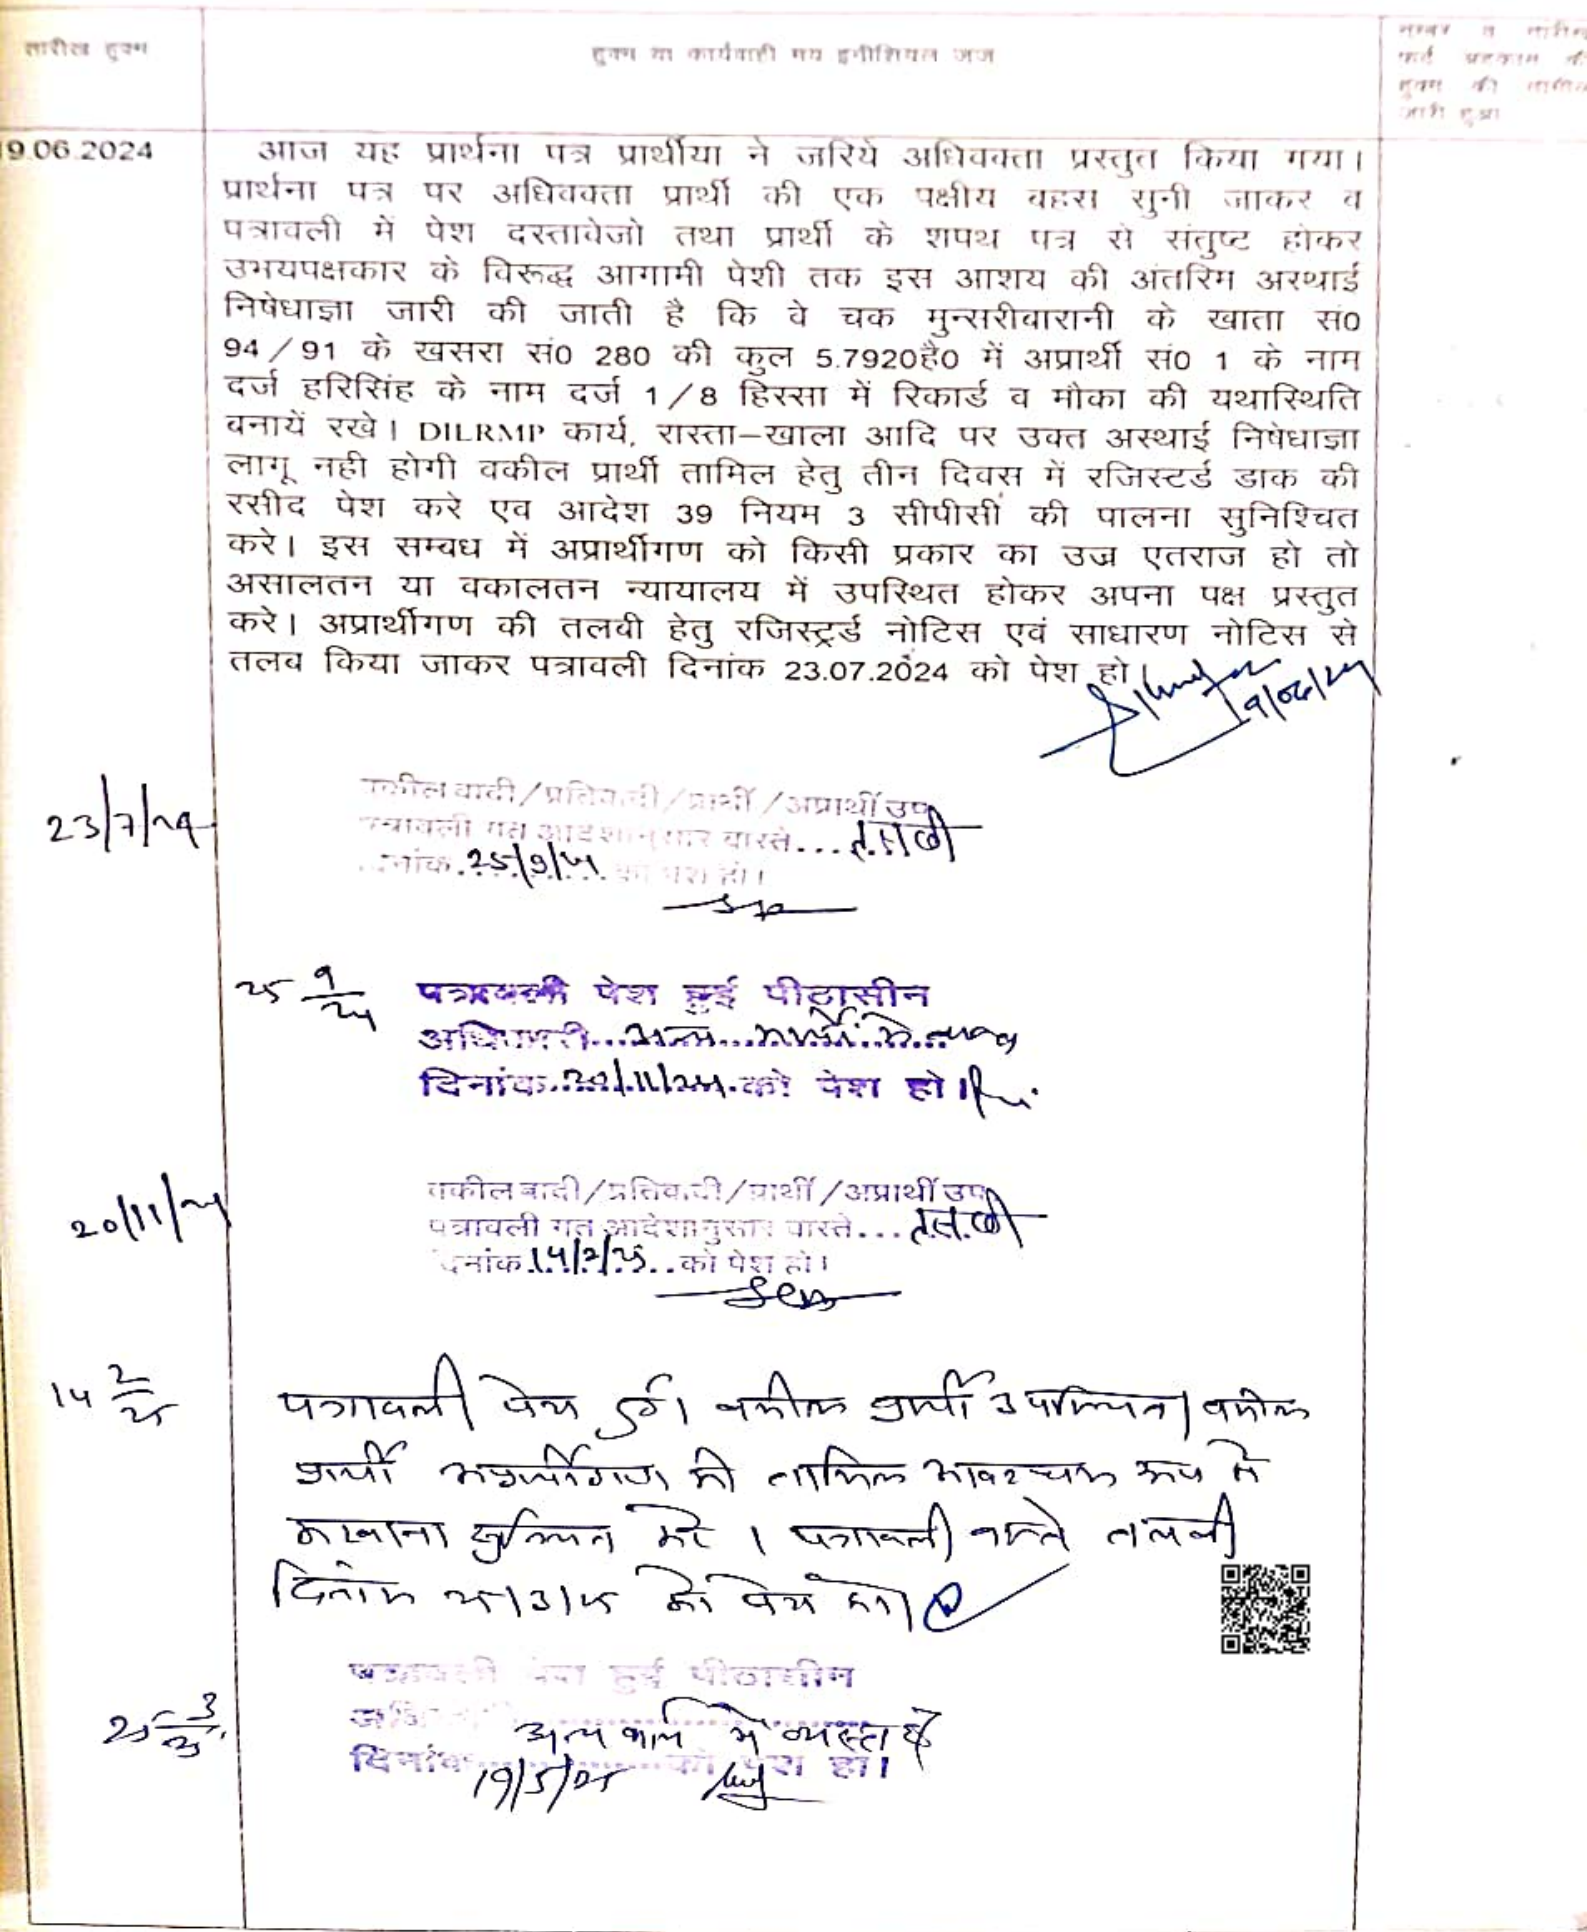 तारीख हुक्म
हुक्म या कार्यवाही मय इनीशियल जज
नम्बर व तारीख
फर्द अहकाम
हुक्म की तामील
जारी हुआ
19.06.2024
आज यह प्रार्थना पत्र प्रार्थीया ने जरिये अधिवक्ता प्रस्तुत किया गया।
प्रार्थना पत्र पर अधिवक्ता प्रार्थी की एक पक्षीय बहस सुनी जाकर व
पत्रावली में पेश दस्तावेजो तथा प्रार्थी के शपथ पत्र से संतुष्ट होकर
उभयपक्षकार के विरूद्ध आगामी पेशी तक इस आशय की अंतरिम अस्थाई
निषेधाज्ञा जारी की जाती है कि वे चक मुन्सरीबारानी के खाता सं0
94/91 के खसरा सं0 280 की कुल 5.7920है0 में अप्रार्थी सं0 1 के नाम
दर्ज हरिसिंह के नाम दर्ज 1/8 हिस्सा में रिकार्ड व मौका की यथास्थिति
बनायें रखे। DILRMP कार्य, रास्ता–खाला आदि पर उक्त अस्थाई निषेधाज्ञा
लागू नही होगी वकील प्रार्थी तामिल हेतु तीन दिवस में रजिस्टर्ड डाक की
रसीद पेश करे एव आदेश 39 नियम 3 सीपीसी की पालना सुनिश्चित
करे। इस सम्बध में अप्रार्थीगण को किसी प्रकार का उज्र एतराज हो तो
असालतन या वकालतन न्यायालय में उपस्थित होकर अपना पक्ष प्रस्तुत
करे। अप्रार्थीगण की तलवी हेतु रजिस्ट्रर्ड नोटिस एवं साधारण नोटिस से
तलब किया जाकर पत्रावली दिनांक 23.07.2024 को पेश हो।
19/06/24
23/7/24
वकील वादी/प्रतिवादी/प्रार्थी/अप्रार्थी उप
पत्रावली गत आदेशानुसार वास्ते...
दिनांक.25/9/24. को पेश हो।
25 9/24
पत्रावली पेश हुई पीठासीन
अधिकारी...अन्य...कार्यो में व्यस्त
दिनांक.20/11/24.को पेश हो।
20/11/24
वकील वादी/प्रतिवादी/प्रार्थी/अप्रार्थी उप
पत्रावली गत आदेशानुसार वास्ते...
दिनांक.14/2/25..को पेश हो।
14 2/25
पत्रावली पेश हुई। वकील प्रार्थी उपस्थित। वकील
प्रार्थी अप्रार्थीगण की तामिल आवश्यक रूप से
करवाना सुनिश्चित करे। पत्रावली वास्ते तलबी
दिनांक 25/3/25 को पेश हो।
25 3/25
पत्रावली पेश हुई पीठासीन
अधिकारी अन्य कार्य में व्यस्त है
दिनांक 19/5/25 को पेश हो।